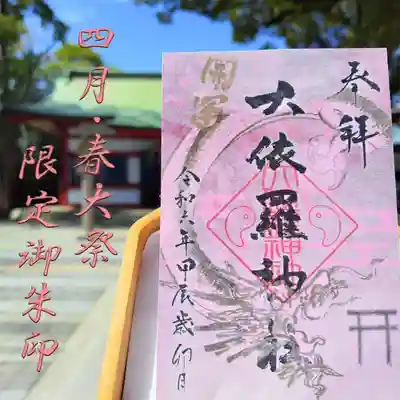 四月・春大祭
限定御朱印
奉拝
開運
大依羅神社
令和六年甲辰歳卯月